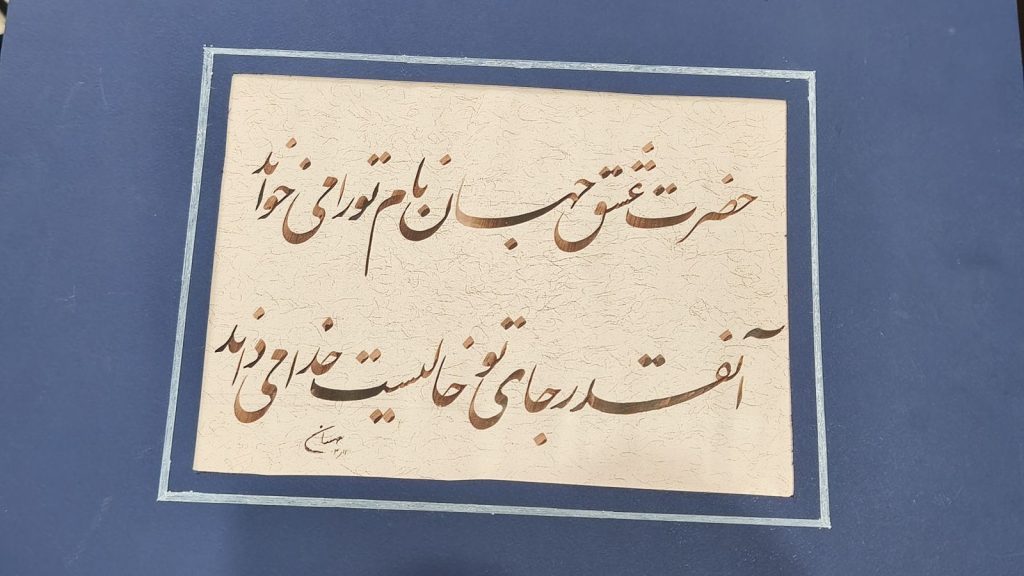 حضرت عشق جهان نام تو را می خواند
آنقدر جای تو خالیست خدا می داند